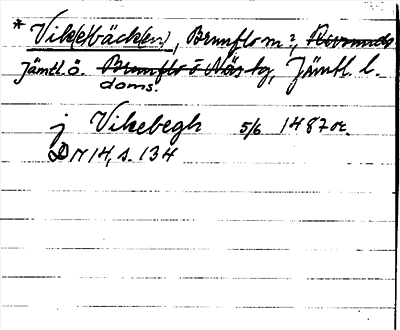 * Vik(e)bäck(en), Brunflo m?, Revsunds
Jämtl. ö. Brunflo o Näs tg, Jämtl. l.
doms.
j Vikebegh 5/6 1487 or.
DN 14, s. 134